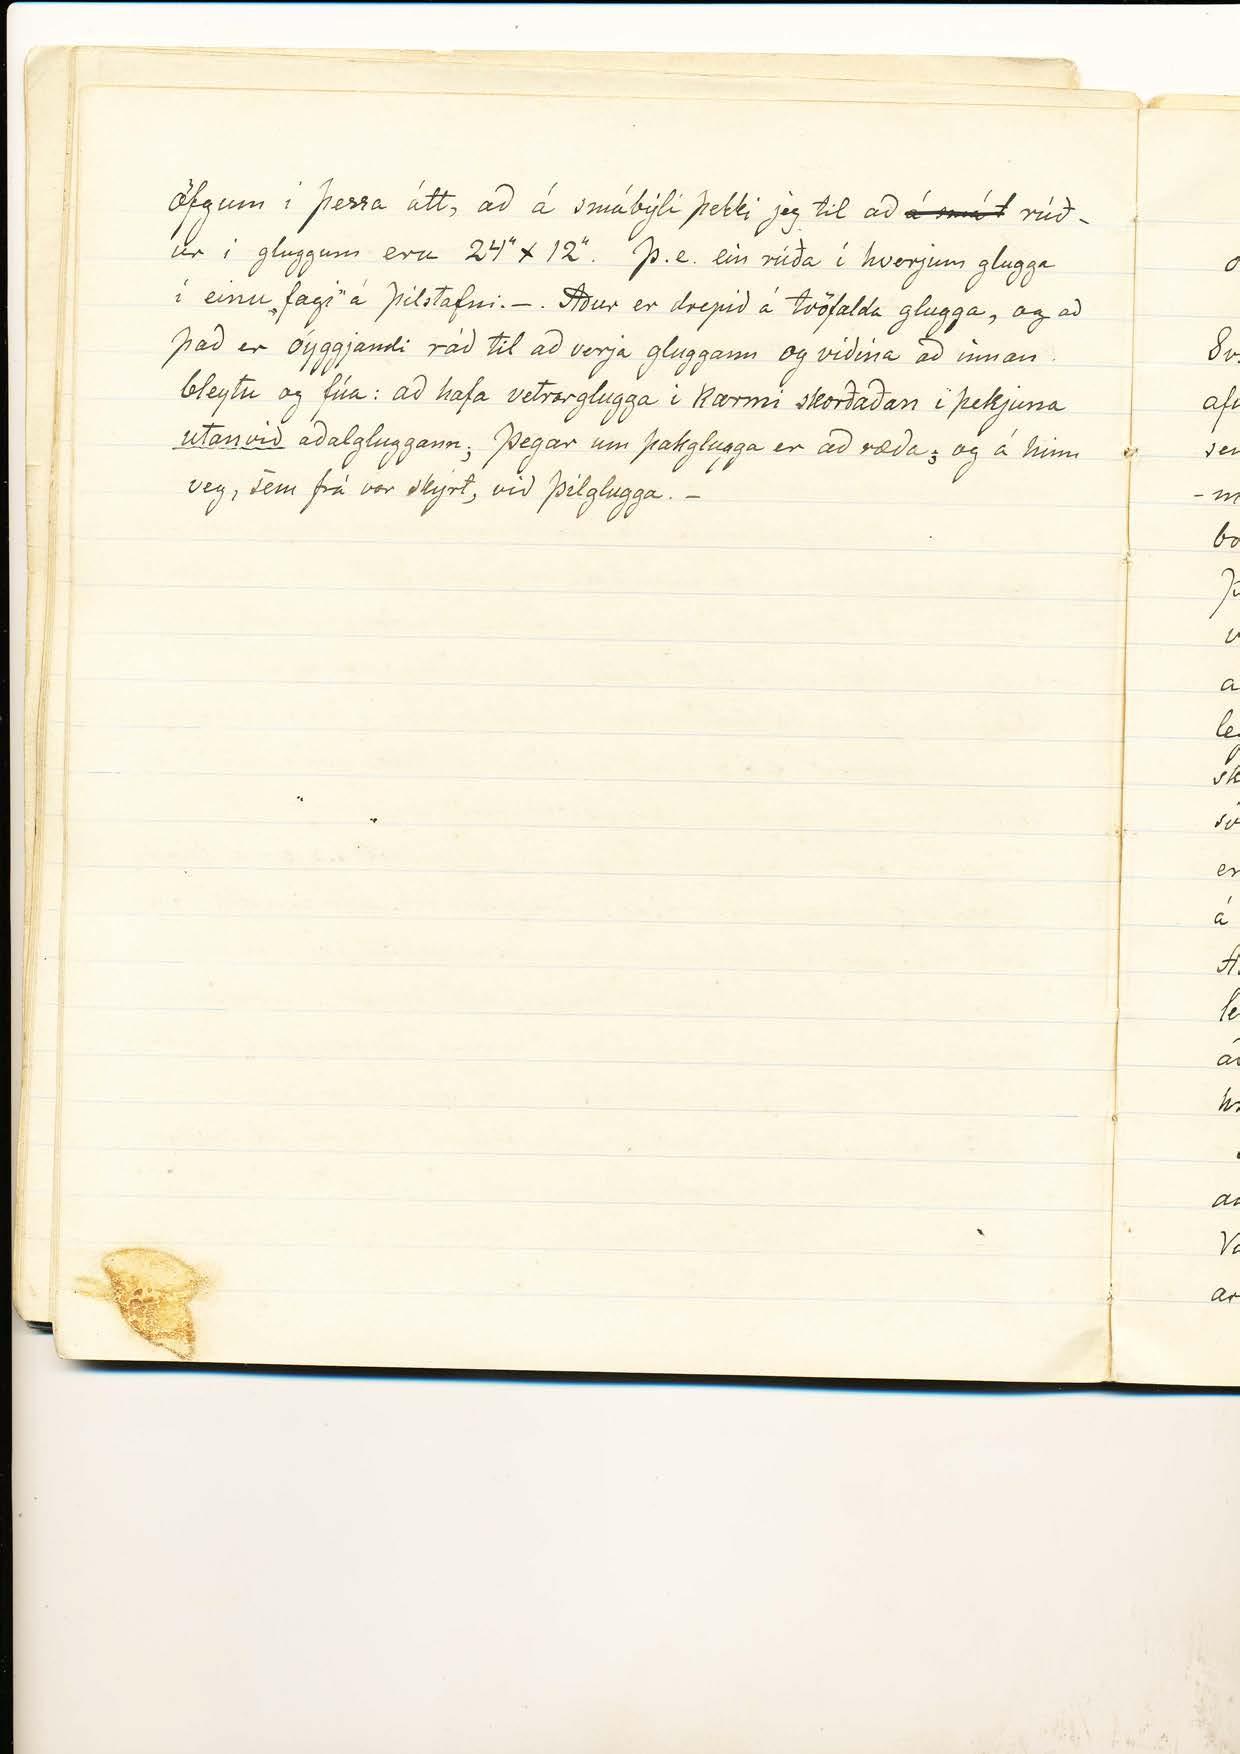 öfgum i þessa átt, að á smábýli þekki jeg til að á smát rúð-
ur i gluggum eru 24" x 12". Þ.e. ein rúða í hverjum glugga
í einu „fagi" á þilstafni. —. Aður er drepið á tvöfalda glugga, og að
það er óyggjandi ráð til að verja gluggann og viðina að innan
bleytu og fúa: að hafa vetrarglugga i Karmi skorðaðan i þekjuna
utanvið aðalgluggann; Þegar um þakglugga er að ræða; og á hinn
veg, sem frá var skýrt, við þilglugga. —
o
Sv.
afu
sem
-m
bo
þ
v
a
le
sk
sv
er
á
A
le
ár
hv
an
Va
ar